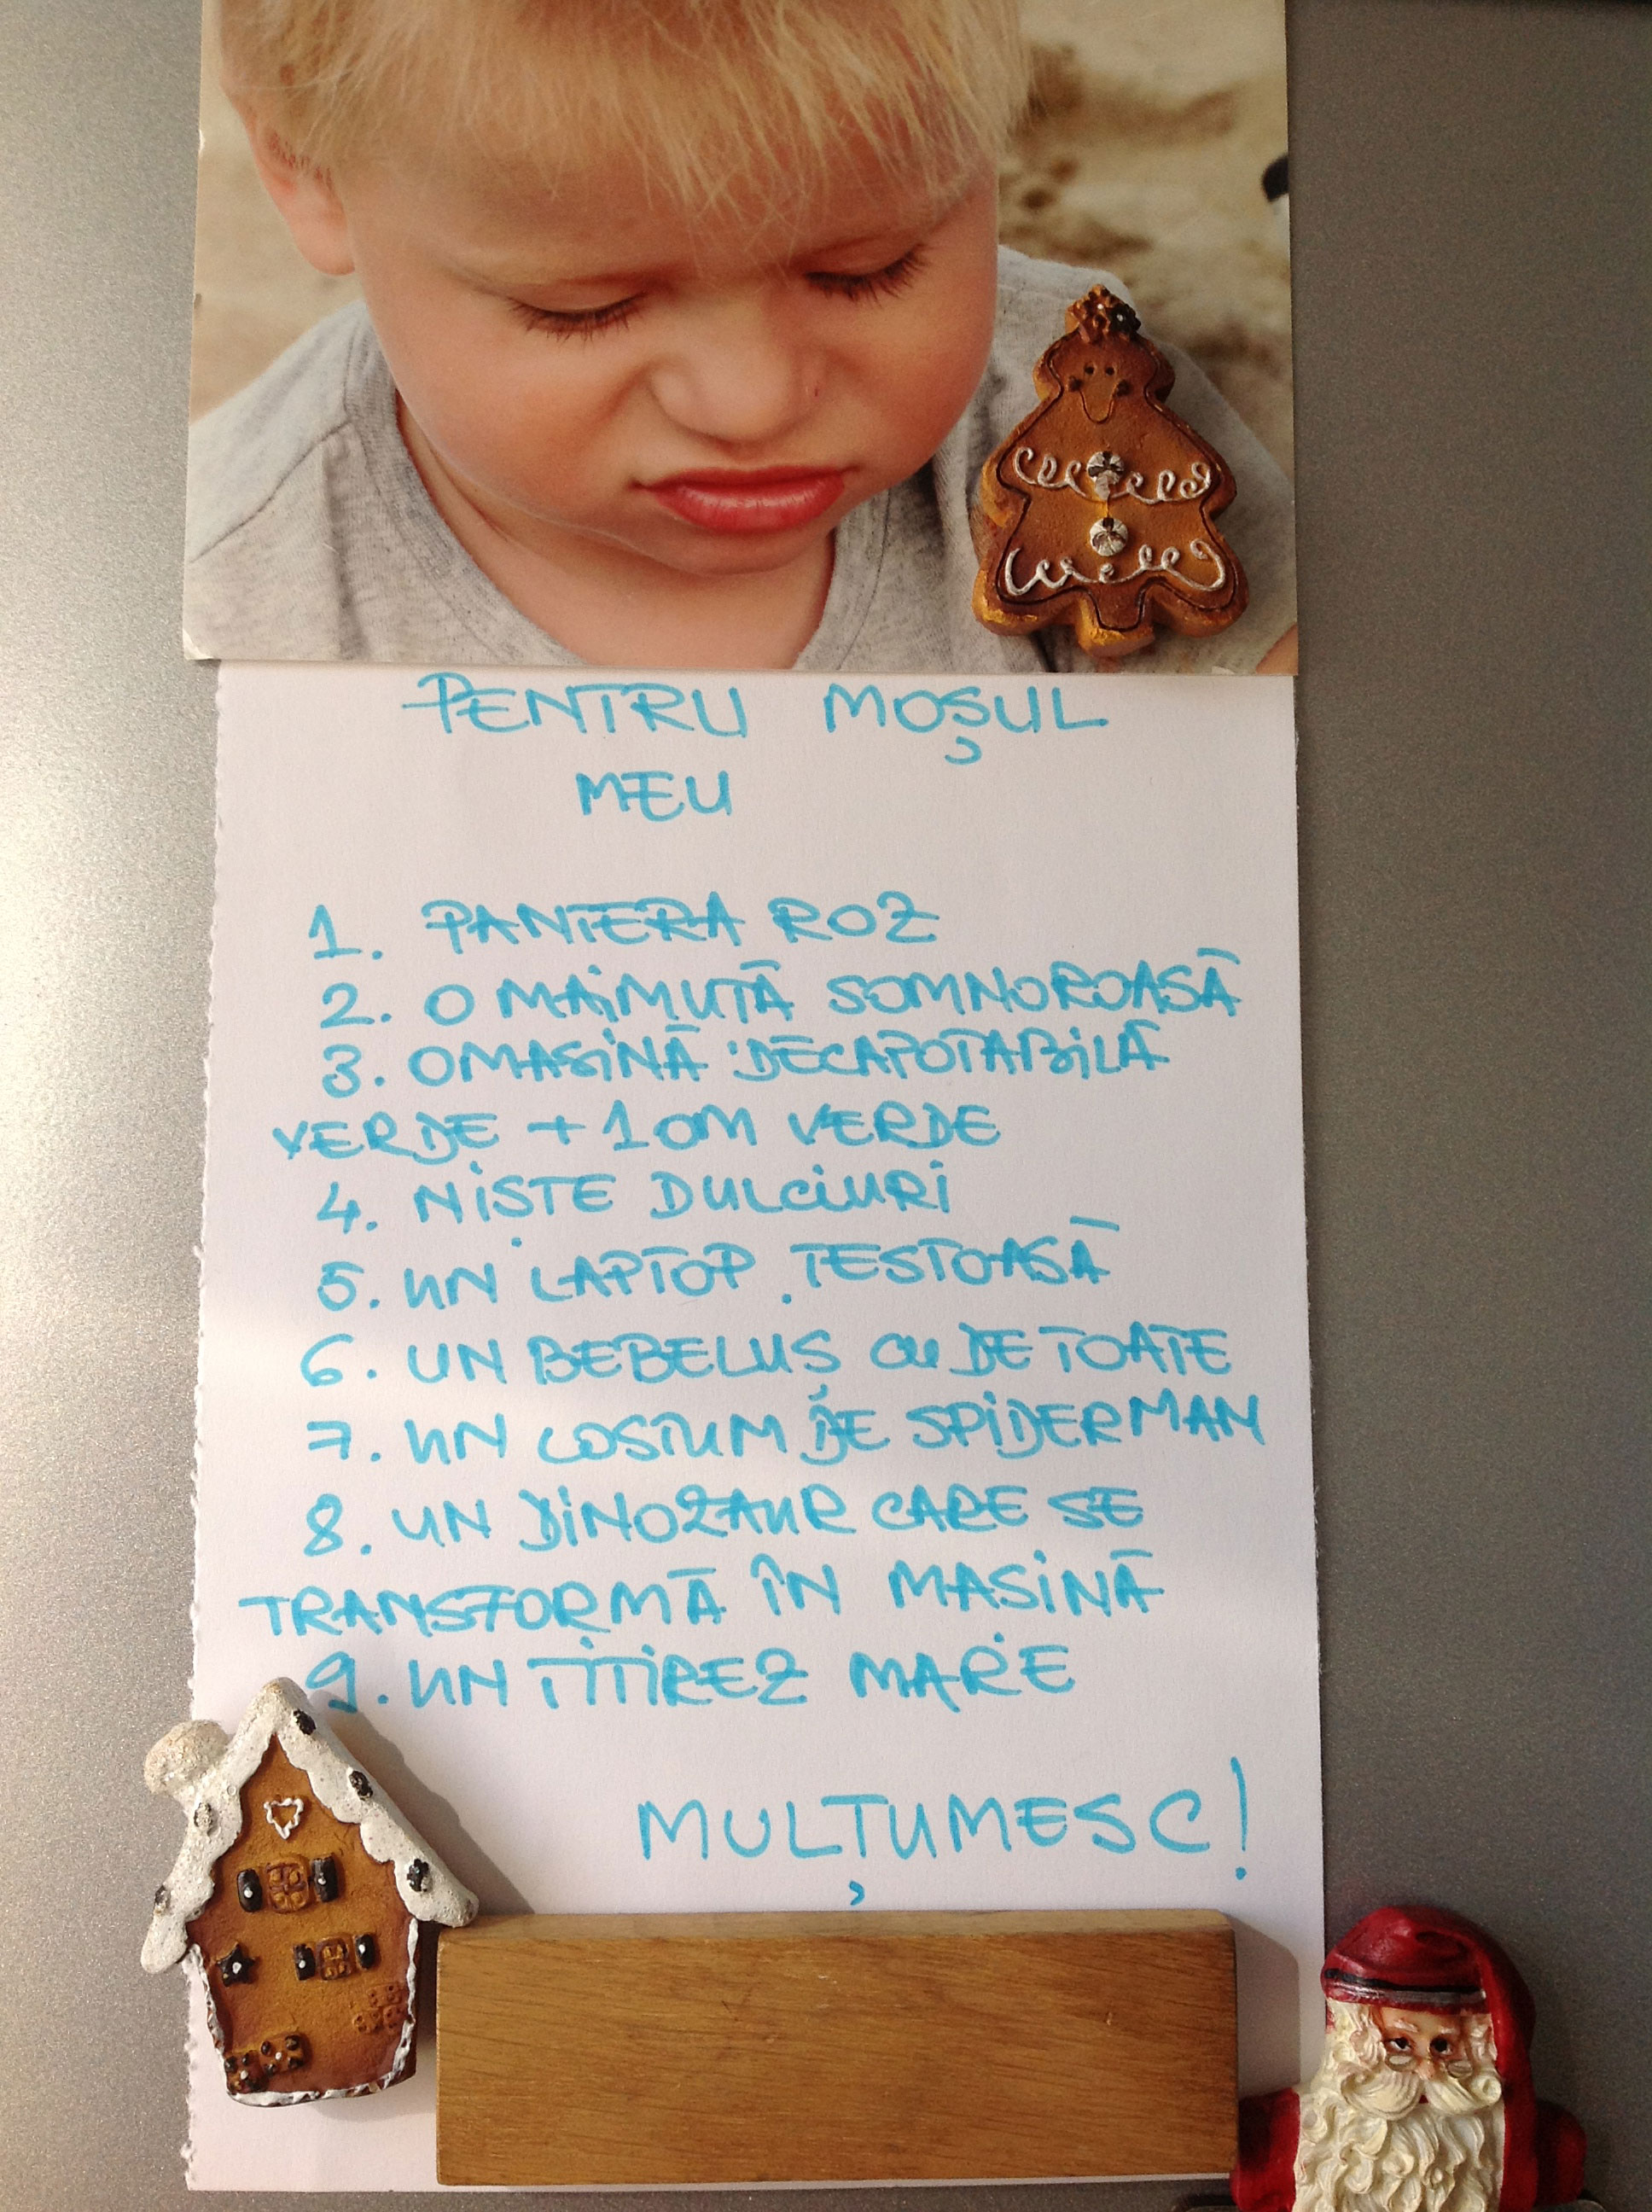 PENTRU MOȘUL
MEU
1. PANTERA ROZ
2. O MAIMUȚĂ SOMNOROASĂ
3. O MASINĂ DECAPOTABILĂ
VERDE + 1 OM VERDE
4. NIȘTE DULCIURI
5. UN LAPTOP ȚESTOASĂ
6. UN BEBELUȘ CU DE TOATE
7. UN COSTUM DE SPIDERMAN
8. UN DINOZAUR CARE SE
TRANSFORMĂ ÎN MASINĂ
9. UN TITIREZ MARE
MULȚUMESC!